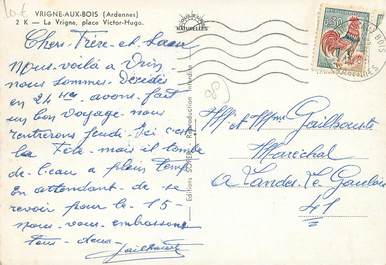 VRIGNE-AUX-BOIS (Ardennes)
2 K — La Vrigne, place Victor-Hugo.
Chers Frère et Sœur
Nous voilà à Vrin
nous sommes décidés
en 24 avons fait
un bon voyage nous
rentrerons jeudi. Ici c'est
la Fête mais il tombe
de l'eau a plein temps
en attendant de se
revoir pour le 15
nous vous embrassons
tous deux
Gailhouste
NATURELLES
0,30
BOIS
Editions
Reproduction Interdite
Mr et Mme Gailhouste
Maréchal
a Landes Le Gaulois
41